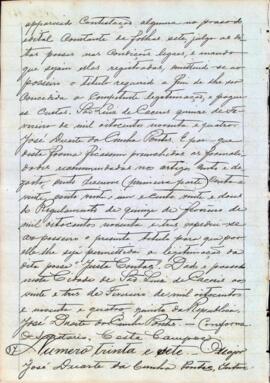 apparecido Contestação alguma no praso do
edital Constante de folhas este julgo as di
tas posses nas Condições legaes, e mando
que sejam ellas registradas, mettendo-se ao
posseiro o titulo requerido a fim de lhe ser
concedida a Competente legitimação, e pague
as Custas. São Luiz de Caceres quinze de Fe
vereiro de mil oitocentos noventa e quatro.
José Duarte da Cunha Pontes. E por que
desta forma ficassem preenchidas as formali
dades recommendadas no artigo cento e de
zoito, (primeira parte) Cento e
vinte, cento vinte e um e cento vinte e dous
do Regulamento de quinze de Fevereiro de
mil oitocentos noventa e tres expediu-se
ao posseiro o presente titulo para que por
elle lhe seja permittida a legitimação da
dita posse "Justo Contas". Dado e passado
nesta Cidade de São Luiz de Caceres aos
vinte e tres de Fevereiro de mil oitocentos
e noventa e quatro, quinto da Republica.
José Duarte da Cunha Pontes. — Conforme
O Secretario, Costa Campos
37 Numero trinta e sete — Major
José Duarte da Cunha Pontes,